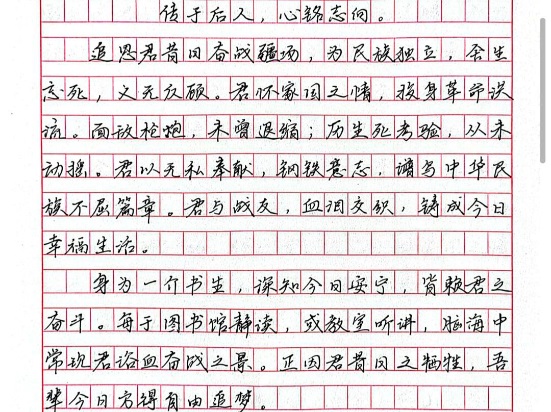 传于后人，心铭志向。
追思君昔日奋战疆场，为民族独立，舍生
忘死，义无反顾。君怀家国之情，投身革命洪
流。面敌枪炮，未曾退缩；历生死考验，从未
动摇。君以无私奉献，钢铁意志，谱写中华民
族不屈篇章。君与战友，血泪交织，铸成今日
幸福生活。
身为一个书生，深知今日安宁，皆赖君之
奋斗。每于图书馆静读，或教室听讲，脑海中
常现君浴血奋战之景。正因君昔日之牺牲，吾
辈今日方得自由追梦。